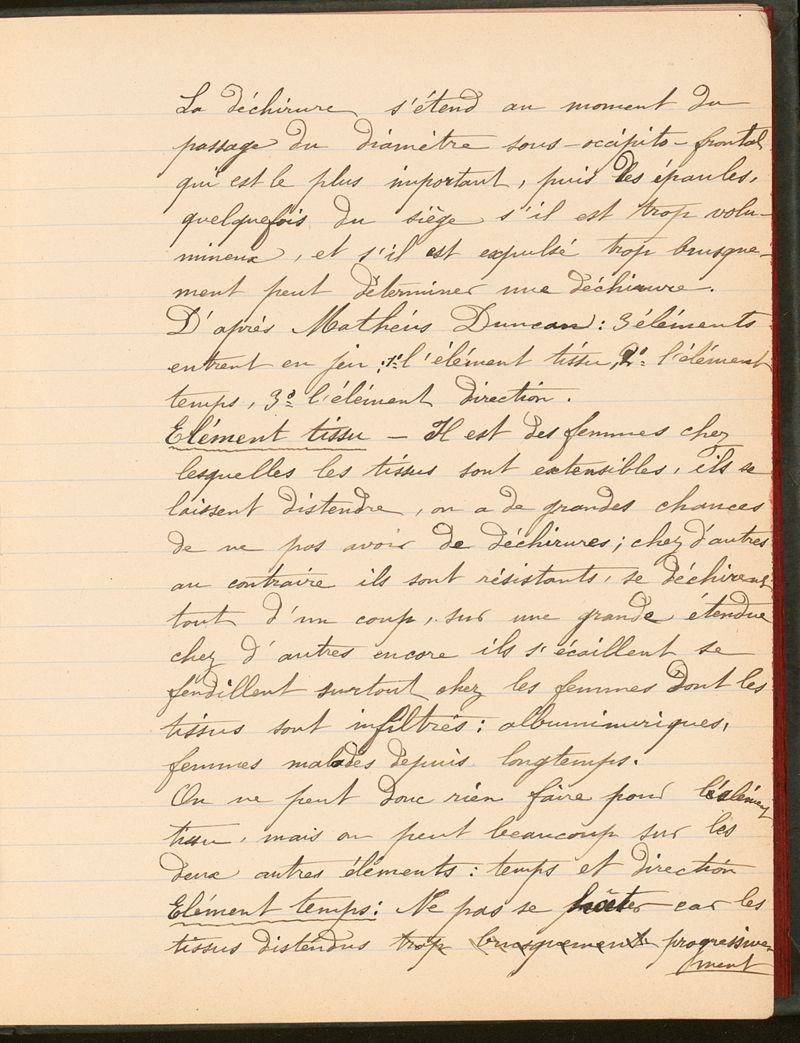 La déchirure s'étend au moment du
passage du diamètre sous-occipito-frontal
qui est le plus important, puis des épaules,
quelquefois du siège s'il est trop volu-
mineux, et s'il est expulsé trop brusque-
ment peut déterminer une déchirure.
D'après Mathéus Duncan : 3 éléments
entrent en jeu : 1º l'élément tissu, 2º l'élément
temps, 3º l'élément direction.
Elément tissu - Il est des femmes chez
lesquelles les tissus sont extensibles, ils se
laissent distendre, on a de grandes chances
de ne pas avoir de déchirures ; chez d'autres
au contraire ils sont résistants, se déchirent
tout d'un coup, sur une grande étendue
chez d'autres encore ils s'écaillent se
fendillent surtout chez les femmes dont les
tissus sont infiltrés : albuminuriques,
femmes malades depuis longtemps.
On ne peut donc rien faire pour l'élément
tissu, mais on peut beaucoup sur les
deux autres éléments : temps et direction
Elément temps : Ne pas se hâter car les
tissus distendus trop brusquement progressive-
ment